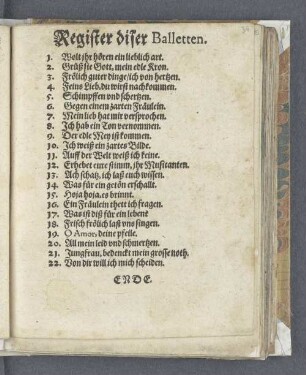 Register diser Balletten.
1. Wolt jhr hören ein lieblich art.
2. Grüß sie Gott, mein edle Kron.
3. Frölich guter dinge/ich von hertzen.
4. Feins Lieb, du wirst nachkommen.
5. Schimpffen vnd schertzen.
6. Gegen einem zarten Fräulein.
7. Mein lieb hat mir versprochen.
8. Ich hab ein Ton vernommen.
9. Der edle Mey ist kommen.
10. Ich weiß ein zartes Bilde.
11. Auff der Welt weiß ich keine.
12. Erhebet eure stimm, jhr Musicanten.
13. Ach schatz, ich laß euch wissen.
14. Was für ein getön erschallt.
15. Hoja hoja, es brinnt.
16. Ein Fräulein thett ich fragen.
17. Was ist diß für ein leben
18. Frisch frölich last vns singen.
19. O Amor, deine pfeile.
20. All mein leid vnd schmertzen.
21. Jungfraw, bedenckt mein grosse noth.
22. Von dir will ich mich scheiden.
ENDE.